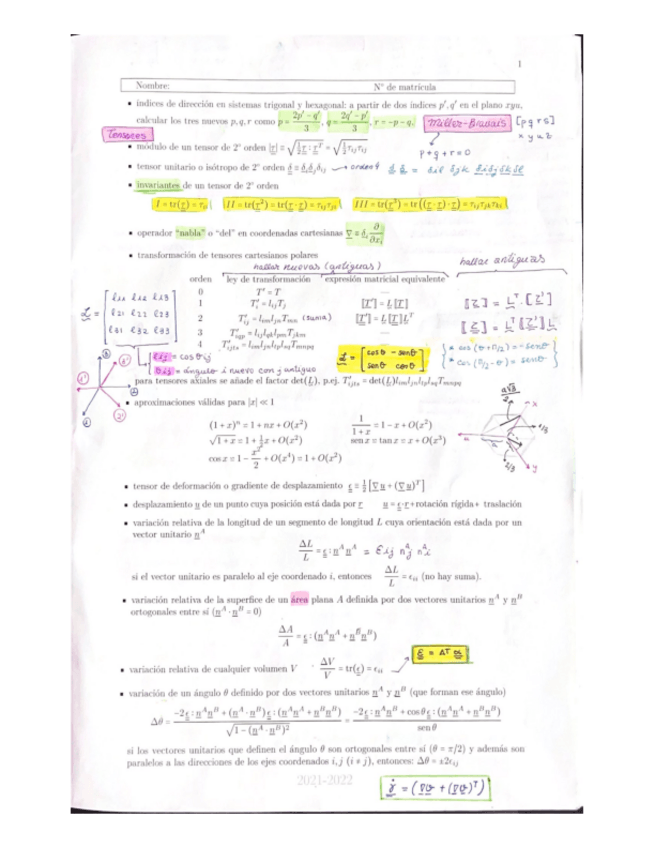 1
Nombre: Nº de matrícula
• índices de dirección en sistemas trigonal y hexagonal: a partir de dos índices p', q' en el plano xyu,
calcular los tres nuevos p, q, r como p = (2p' − q')/3, q = (2q' − p')/3, r = −p − q.
Miller-Bravais [p q r s]
x y u z
p + q + r = 0
Tensores
• módulo de un tensor de 2º orden |τ| = √(½ τ : τᵀ) = √(½ τij τij)
• tensor unitario o isótropo de 2º orden δ = δi δj δij → orden 4
• invariantes de un tensor de 2º orden
I = tr(τ) = τii II = tr(τ²) = tr(τ · τ) = τij τji III = tr(τ³) = tr((τ · τ) · τ) = τij τjk τki
• operador "nabla" o "del" en coordenadas cartesianas ∇ ≡ δi ∂/∂xi
• transformación de tensores cartesianos polares
hallar nuevas (antiguas) hallar antiguas
orden ley de transformación expresión matricial equivalente
0 T' = T —
1 T'i = lij Tj [T'] = L [T]
2 T'ij = lim ljn Tmn (suma) [T'] = L [T] Lᵀ
3
4 T'ijkl = lim ljn lkp llq Tmnpq —
L = [l11 l12 l13
l21 l22 l23
l31 l32 l33]
[τ] = Lᵀ · [τ']
[ε] = Lᵀ [τ'] L
lij = cos θij
θij = ángulo i nuevo con j antiguo
L = [cos θ −senθ
senθ cosθ]
* cos (θ+π/2) = −senθ
* cos (π/2 − θ) = senθ
para tensores axiales se añade el factor det(L), p.ej. T'ijkl = det(L) lim ljn lkp llq Tmnpq
• aproximaciones válidas para |x| ≪ 1
(1 + x)ⁿ = 1 + nx + O(x²) 1/(1 + x) = 1 − x + O(x²)
√(1 + x) = 1 + ½x + O(x²) sen x = tan x = x + O(x³)
cos x = 1 − x²/2 + O(x⁴) = 1 + O(x²)
• tensor de deformación o gradiente de desplazamiento ε ≡ ½ [∇u + (∇u)ᵀ]
• desplazamiento u de un punto cuya posición está dada por r u = ε · r + rotación rígida + traslación
• variación relativa de la longitud de un segmento de longitud L cuya orientación está dada por un
vector unitario nᴬ
ΔL/L = ε : nᴬ nᴬ = εij njᴬ niᴬ
si el vector unitario es paralelo al eje coordenado i, entonces ΔL/L = εii (no hay suma).
• variación relativa de la superfice de un área plana A definida por dos vectores unitarios nᴬ y nᴮ
ortogonales entre sí (nᴬ · nᴮ = 0)
ΔA/A = ε : (nᴬ nᴬ + nᴮ nᴮ)
ε = ΔT α
• variación relativa de cualquier volumen V ΔV/V = tr(ε) = εii
• variación de un ángulo θ definido por dos vectores unitarios nᴬ y nᴮ (que forman ese ángulo)
Δθ = (−2ε : nᴬ nᴮ + (nᴬ · nᴮ) ε : (nᴬ nᴬ + nᴮ nᴮ))/√(1 − (nᴬ · nᴮ)²) = (−2ε : nᴬ nᴮ + cos θ ε : (nᴬ nᴬ + nᴮ nᴮ))/sen θ
si los vectores unitarios que definen el ángulo θ son ortogonales entre sí (θ = π/2) y además son
paralelos a las direcciones de los ejes coordenados i, j (i ≠ j), entonces: Δθ = ±2εij
2021-2022
γ̇ = (∇v + (∇v)ᵀ)